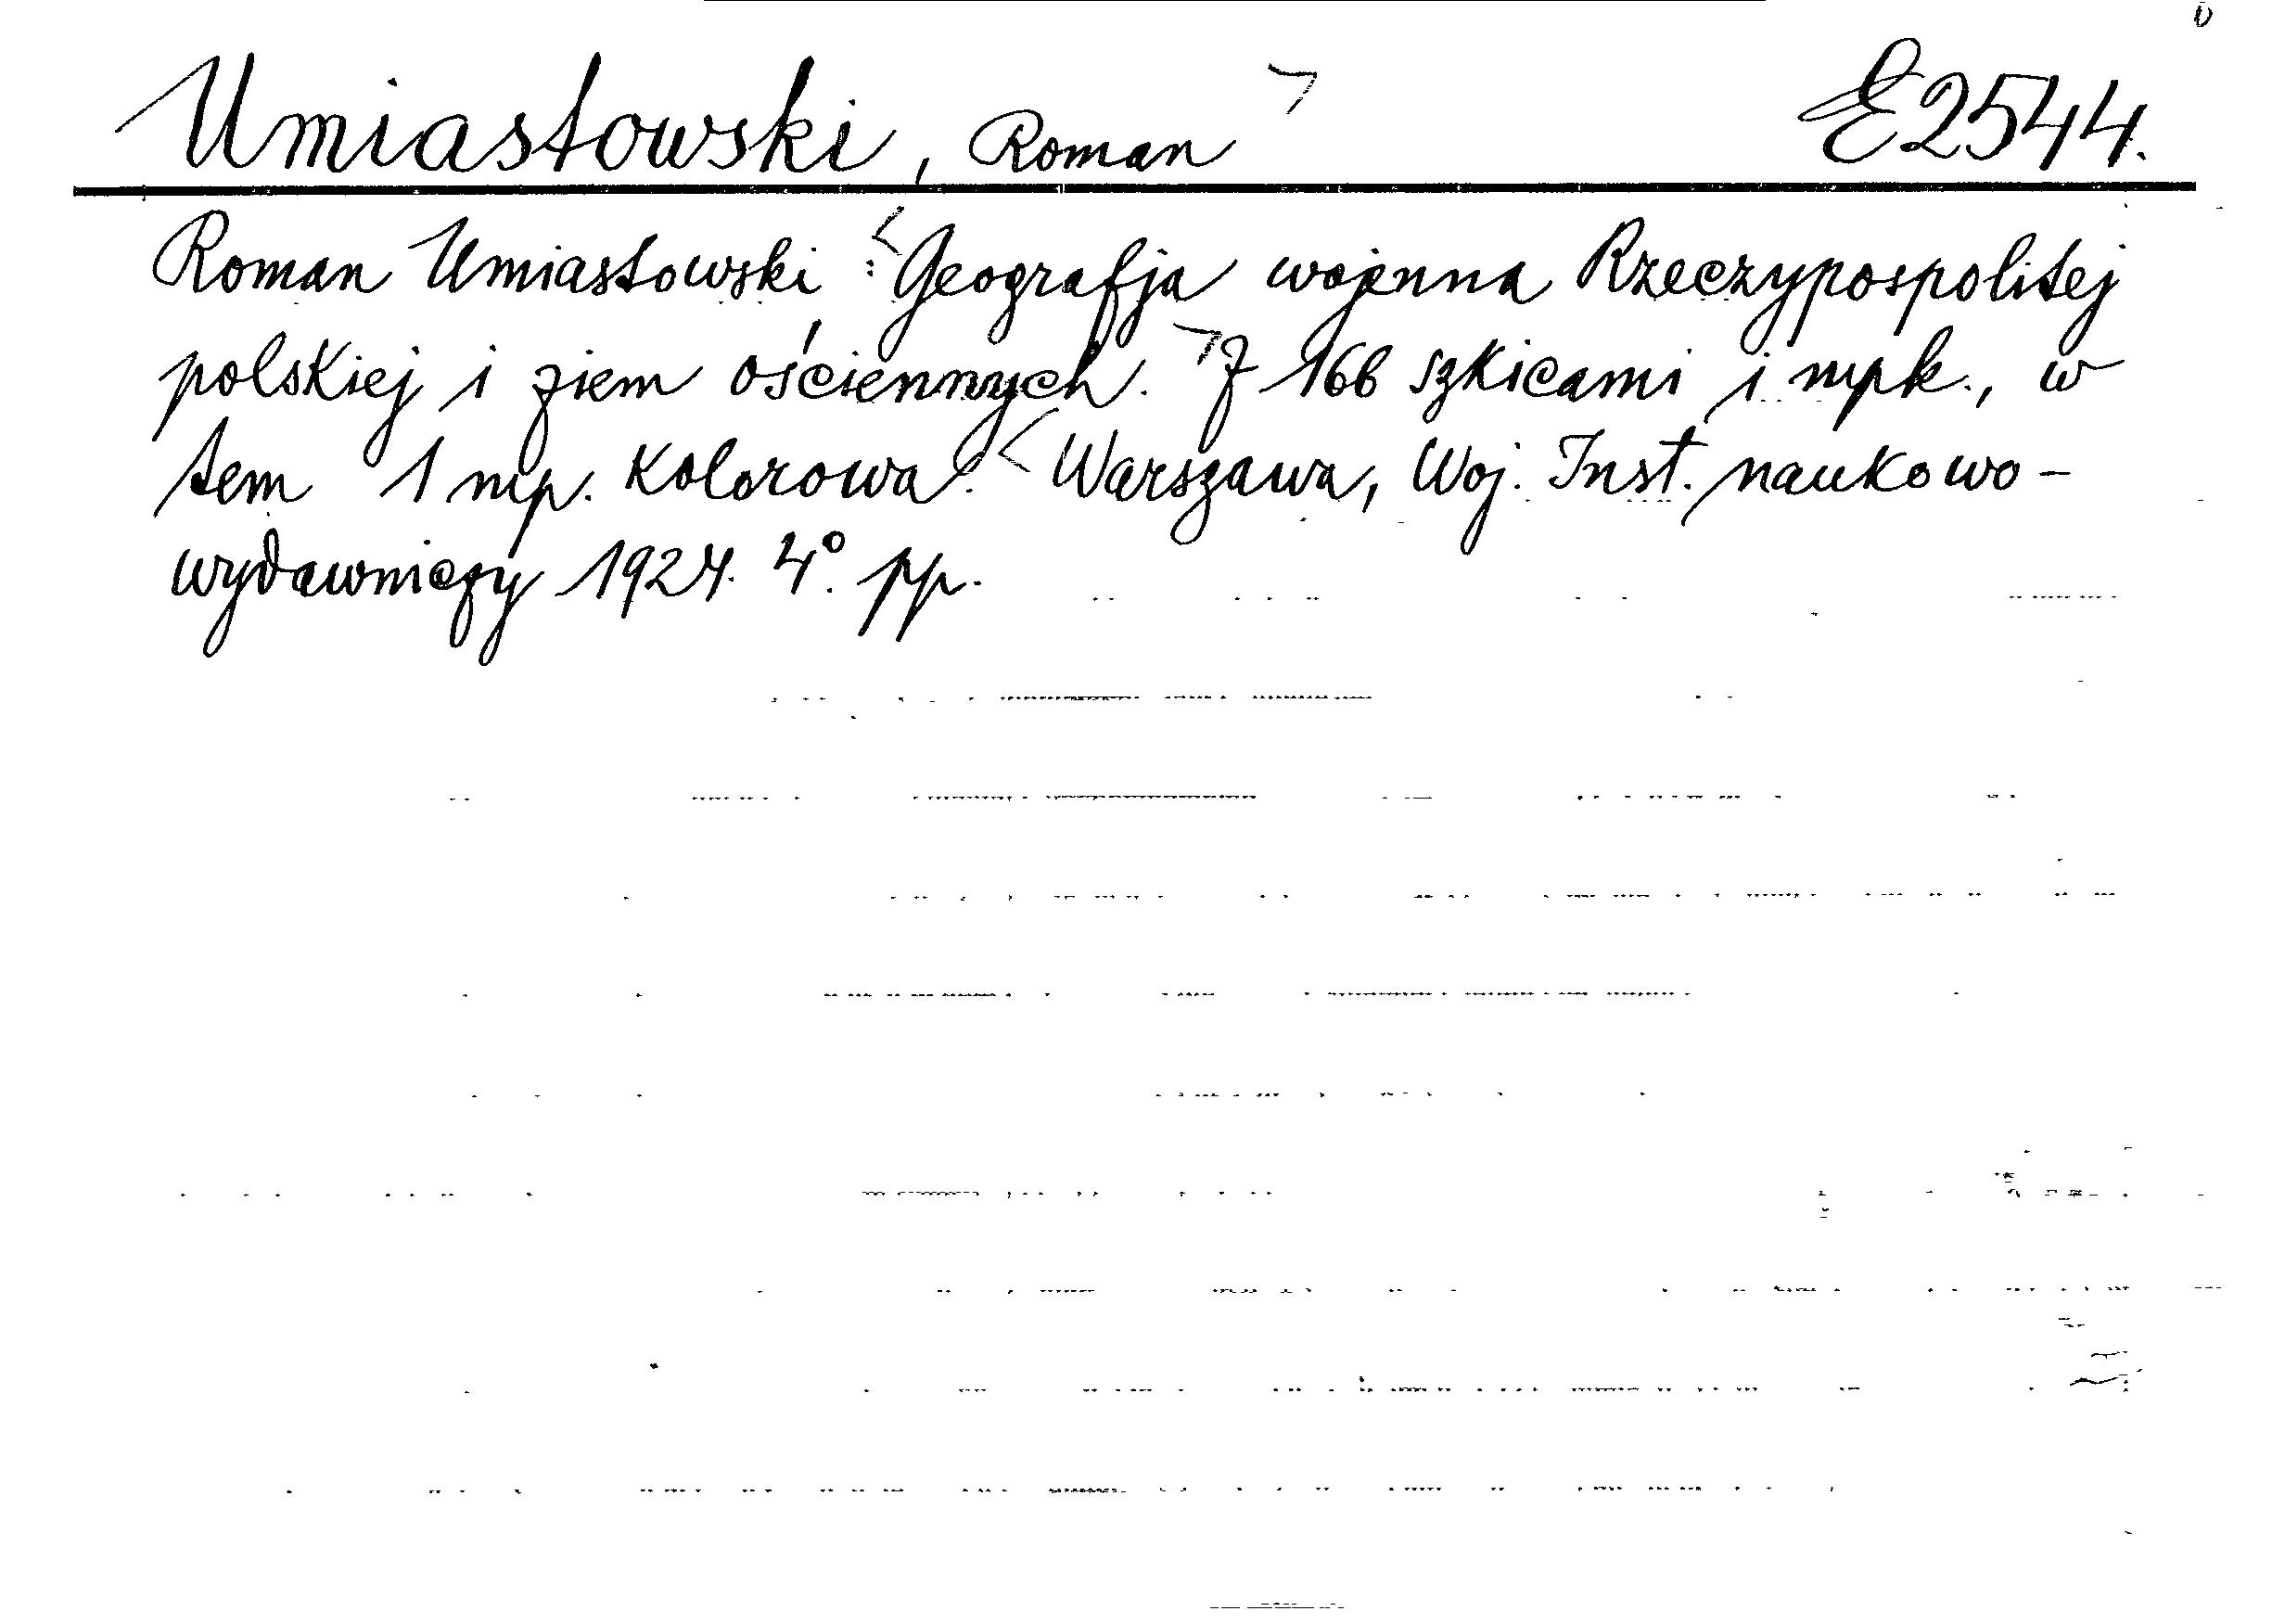 Umiastowski, Roman E2544.
Roman Umiastowski: Geografja wojenna Rzeczypospolitej
polskiej i ziem ościennych. Z 166 szkicami i mpk., w
tem 1 mp. kolorowa. Warszawa, Woj. Inst. naukowo-
wydawniczy 1924. 4°. pp.